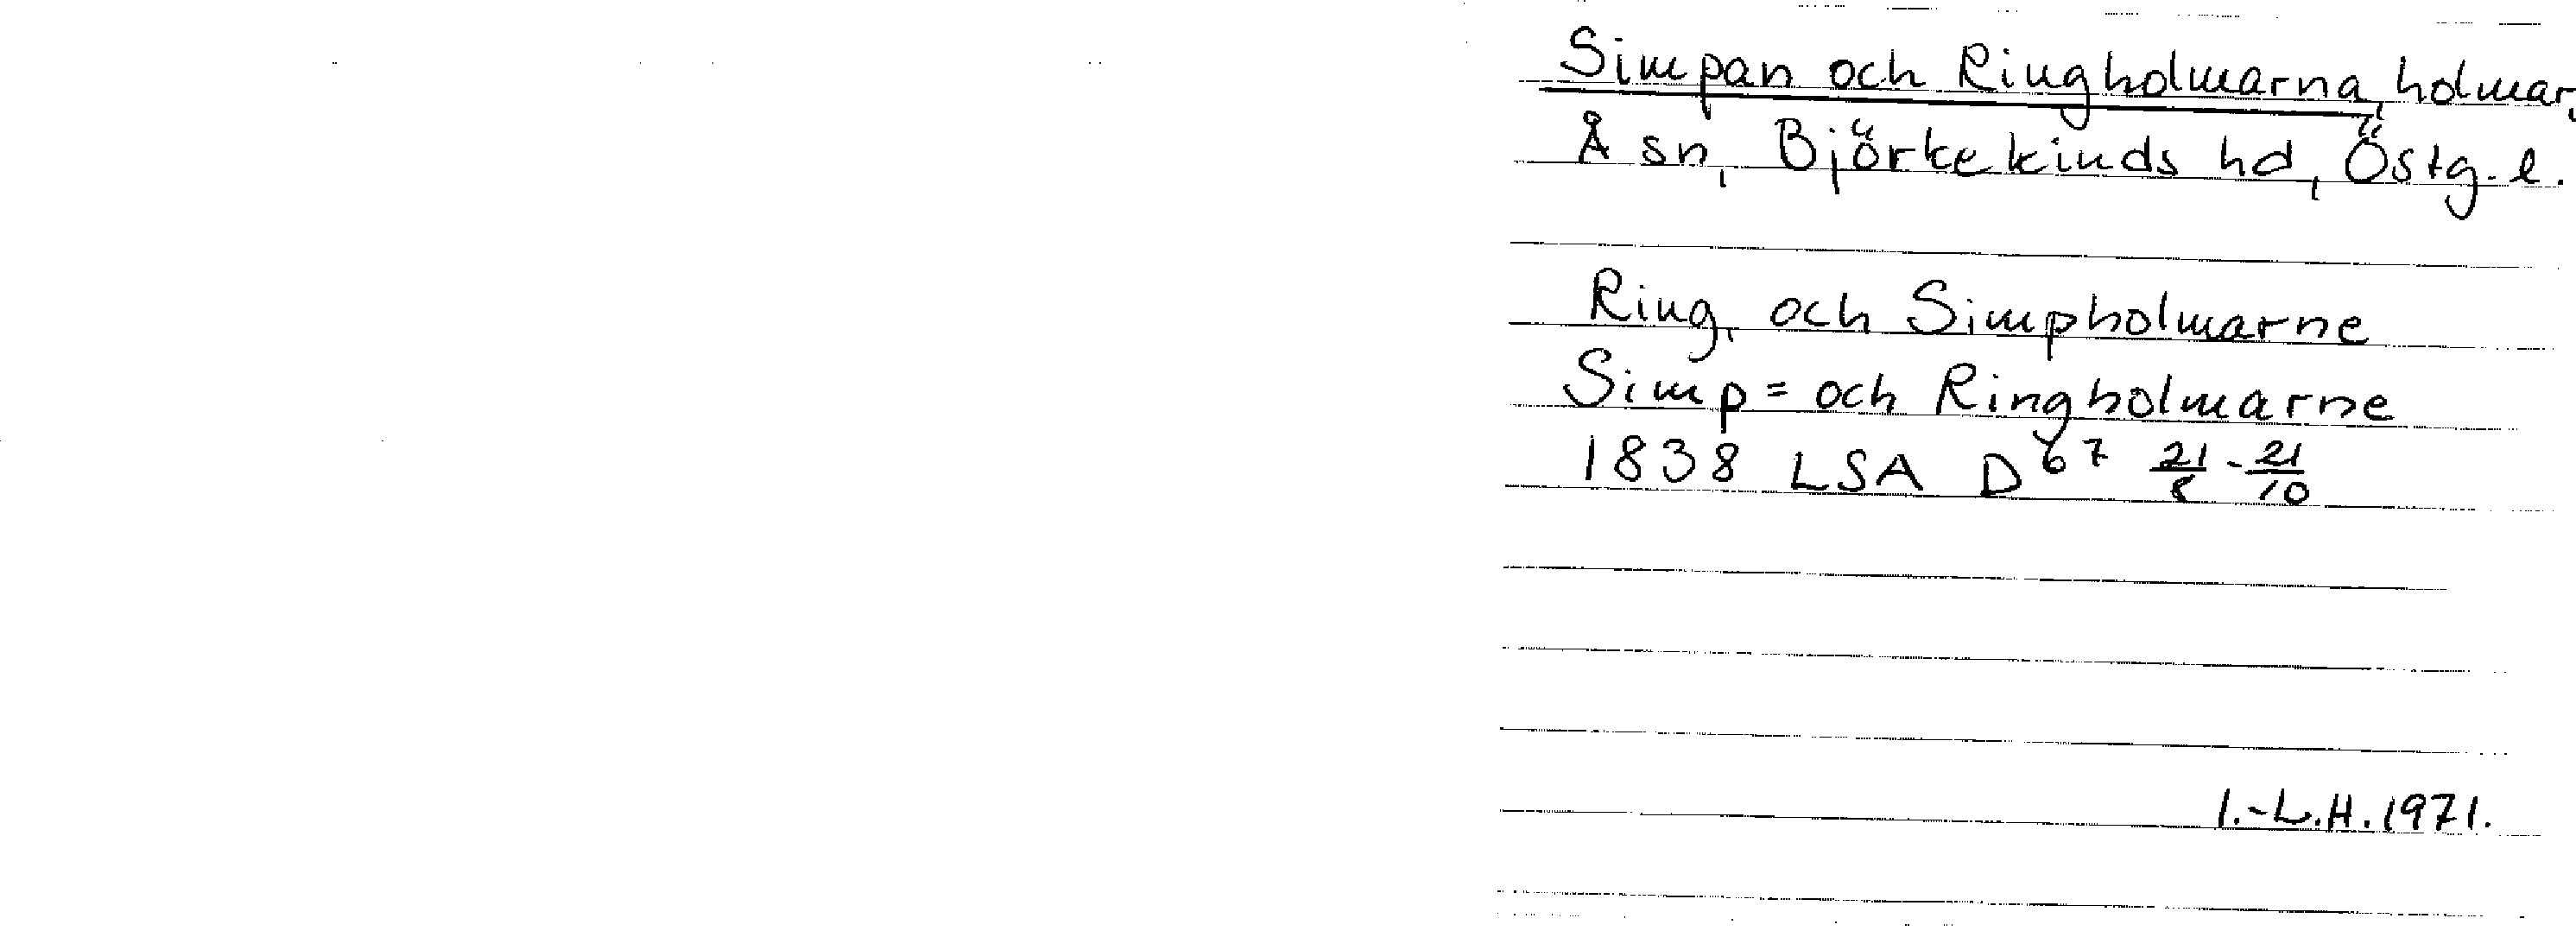 Simpan och Ringholmarna, holmar,
Å sn, Björkekinds hd, Östg. l.
Ring, och Simpholmarne
Simp= och Ringholmarne
1838 LSA D67 21/8 - 21/10
I.-L.H. 1971.